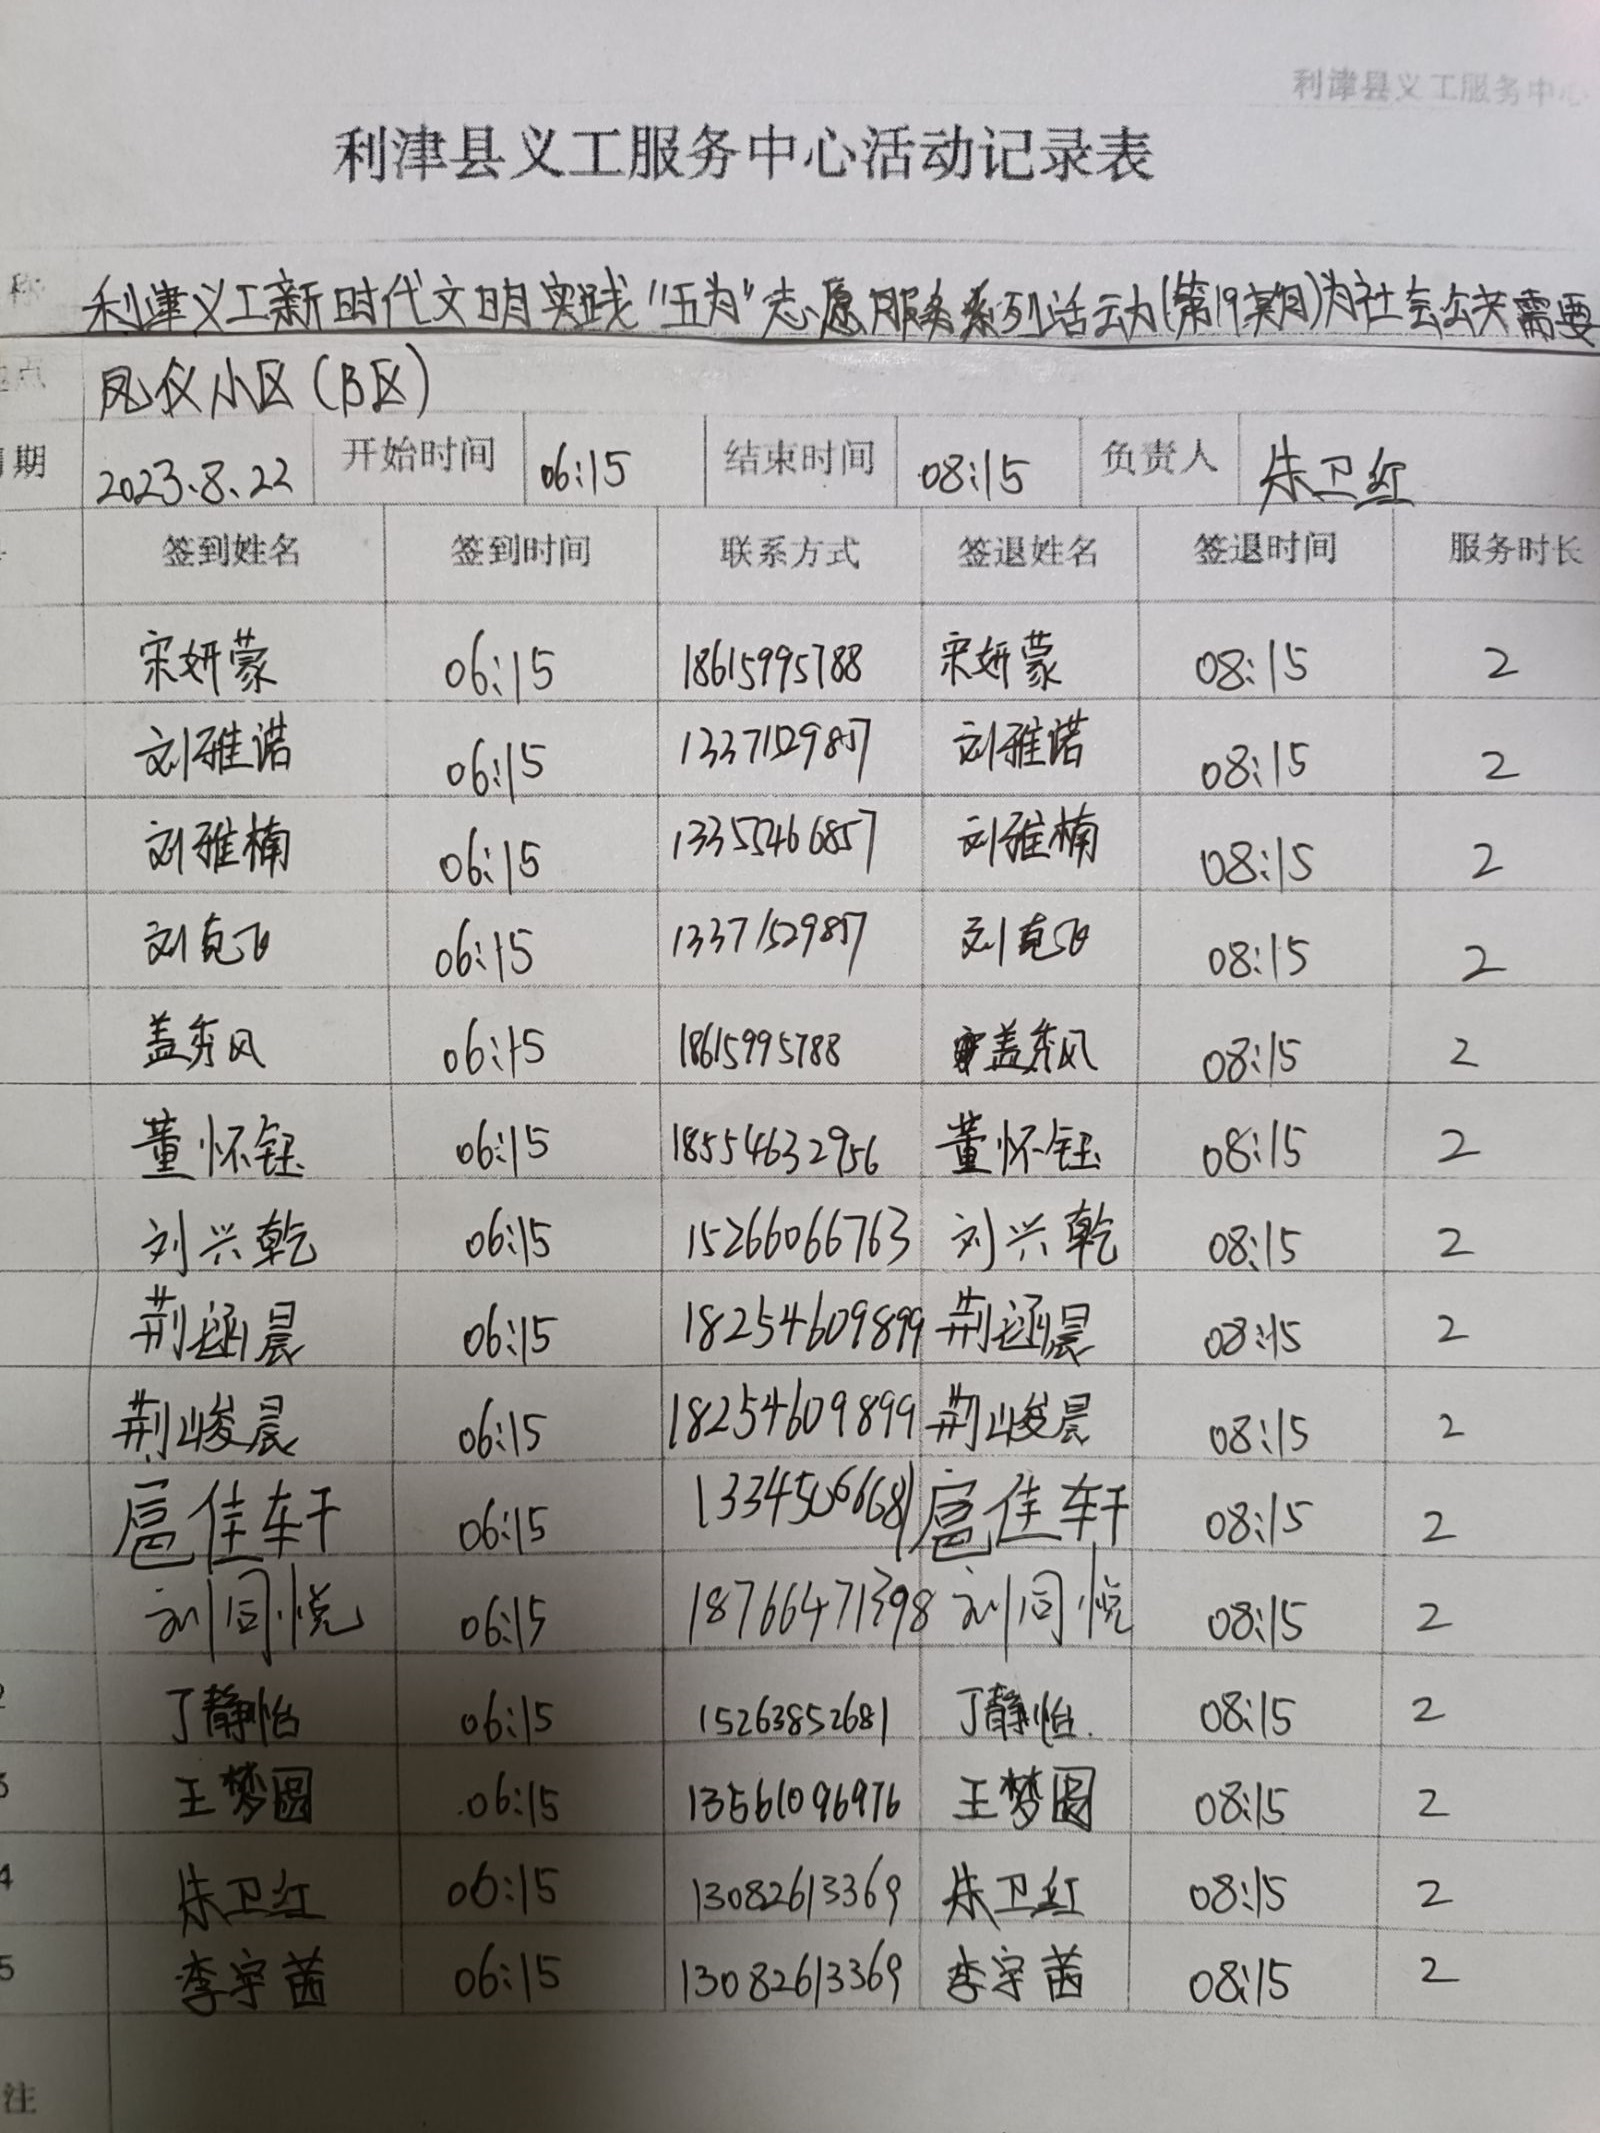 利津县义工服务中心
利津县义工服务中心活动记录表
称 利津义工新时代文明实践"五为"志愿服务系列活动(第19期)为社会公共需要
点 凤仪小区(B区)
期 2023.8.22 开始时间 06:15 结束时间 08:15 负责人 朱卫红
签到姓名 签到时间 联系方式 签退姓名 签退时间 服务时长
宋妍蒙 06:15 18615995788 宋妍蒙 08:15 2
刘雅诺 06:15 13371529857 刘雅诺 08:15 2
刘雅楠 06:15 13355466857 刘雅楠 08:15 2
刘克飞 06:15 13371529857 刘克飞 08:15 2
盖秀风 06:15 18615995788 盖秀风 08:15 2
董怀钰 06:15 18554632956 董怀钰 08:15 2
刘兴乾 06:15 15266066763 刘兴乾 08:15 2
荆涵晨 06:15 18254609899 荆涵晨 08:15 2
荆峻晨 06:15 18254609899 荆峻晨 08:15 2
扈佳轩 06:15 13345066681 扈佳轩 08:15 2
刘同悦 06:15 18766471398 刘同悦 08:15 2
2 丁静怡 06:15 15263852681 丁静怡 08:15 2
3 王梦圆 06:15 13561096976 王梦圆 08:15 2
4 朱卫红 06:15 13082613369 朱卫红 08:15 2
5 李宇茜 06:15 13082613369 李宇茜 08:15 2
注